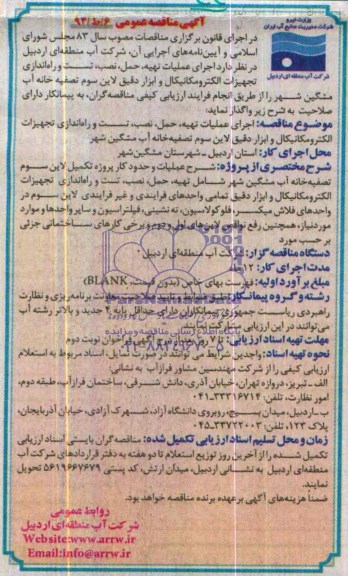 وزارت نیرو
شرکت مدیریت منابع آب ایران
شرکت آب منطقه ای اردبیل
آگهی مناقصه عمومی ۶/ط/۹۳
در اجرای قانون برگزاری مناقصات مصوب سال ۸۳ مجلس شورای
اسلامی و آیین‌نامه‌های اجرایی آن، شرکت آب منطقه‌ای اردبیل
در نظر دارد اجرای عملیات تهیه، حمل، نصب، تست و راه‌اندازی
تجهیزات الکترومکانیکال و ابزار دقیق لاین سوم تصفیه خانه آب
مشگین شهر را از طریق انجام فرایند ارزیابی کیفی مناقصه‌گران، به پیمانکار دارای
صلاحیت به شرح زیر واگذار نماید:
موضوع مناقصه: اجرای عملیات تهیه، حمل، نصب، تست و راه‌اندازی تجهیزات
الکترومکانیکال و ابزار دقیق لاین سوم تصفیه‌خانه آب مشگین شهر
محل اجرای کار: استان اردبیل ـ شهرستان مشگین‌شهر
شرح مختصری از پروژه: شرح عملیات و حدود کار پروژه تکمیل لاین سوم
تصفیه‌خانه آب مشگین شهر شامل تهیه، حمل، نصب، تست و راه‌اندازی تجهیزات
الکترومکانیکال و ابزار دقیق تمامی واحدهای فرایندی و غیر فرایندی لاین سوم در
واحدهای فلاش میکسر، فلوکولاسیون، ته نشینی، فیلتراسیون و سایر واحدها و موارد
موردنیاز، همچنین رفع نواقص لاین‌های اول و دوم و برخی کارهای ساختمانی جزئی
بر حسب مورد
دستگاه مناقصه گزار: شرکت آب منطقه‌ای اردبیل
مدت اجرای کار: ۱۲ ماه
مبلغ برآورد اولیه: فهرست بهای خاص (بدون قیمت، BLANK)
رشته و گروه پیمانکار: طبق ضوابط و تایید صلاحیت معاونت برنامه‌ریزی و نظارت
راهبردی ریاست جمهوری، پیمانکاران دارای حداقل پایه ۴ جدید و بالاتر رشته آب
می‌توانند در این ارزیابی شرکت نمایند.
مهلت تهیه اسناد ارزیابی: تا ۷ روز بعد از درج آگهی فراخوان نوبت دوم
نحوه تهیه اسناد: واجدین شرایط می توانند در صورت تمایل، اسناد مربوط به استعلام
ارزیابی کیفی را از شرکت مهندسین مشاور فرازآب به نشانی:
الف ـ تبریز، دروازه تهران، خیابان آذری، دانش شرقی، ساختمان فرازآب، طبقه دوم،
امور نظارت، تلفن: ۰۴۱-۳۳۳۱۶۷۱۴
ب ـ اردبیل، میدان بسیج، روبروی دانشگاه آزاد، شهرک آزادی، خیابان آذربایجان،
پلاک ۱۲۳، تلفن: ۰۴۵-۳۳۷۲۲۰۰۳
زمان و محل تسلیم اسناد ارزیابی تکمیل شده: مناقصه‌گران بایستی اسناد ارزیابی
تکمیل شده را از آخرین روز توزیع استعلام تا دو هفته به دفتر قراردادهای شرکت آب
منطقه‌ای اردبیل به نشانی اردبیل، میدان ارتش، کد پستی ۵۶۱۹۶۶۷۶۷۹ تحویل
نمایند.
ضمناً هزینه‌های آگهی بر عهده برنده مناقصه خواهد بود.
روابط عمومی
شرکت آب منطقه‌ای اردبیل
Website:www.arrw.ir
Email:info@arrw.ir